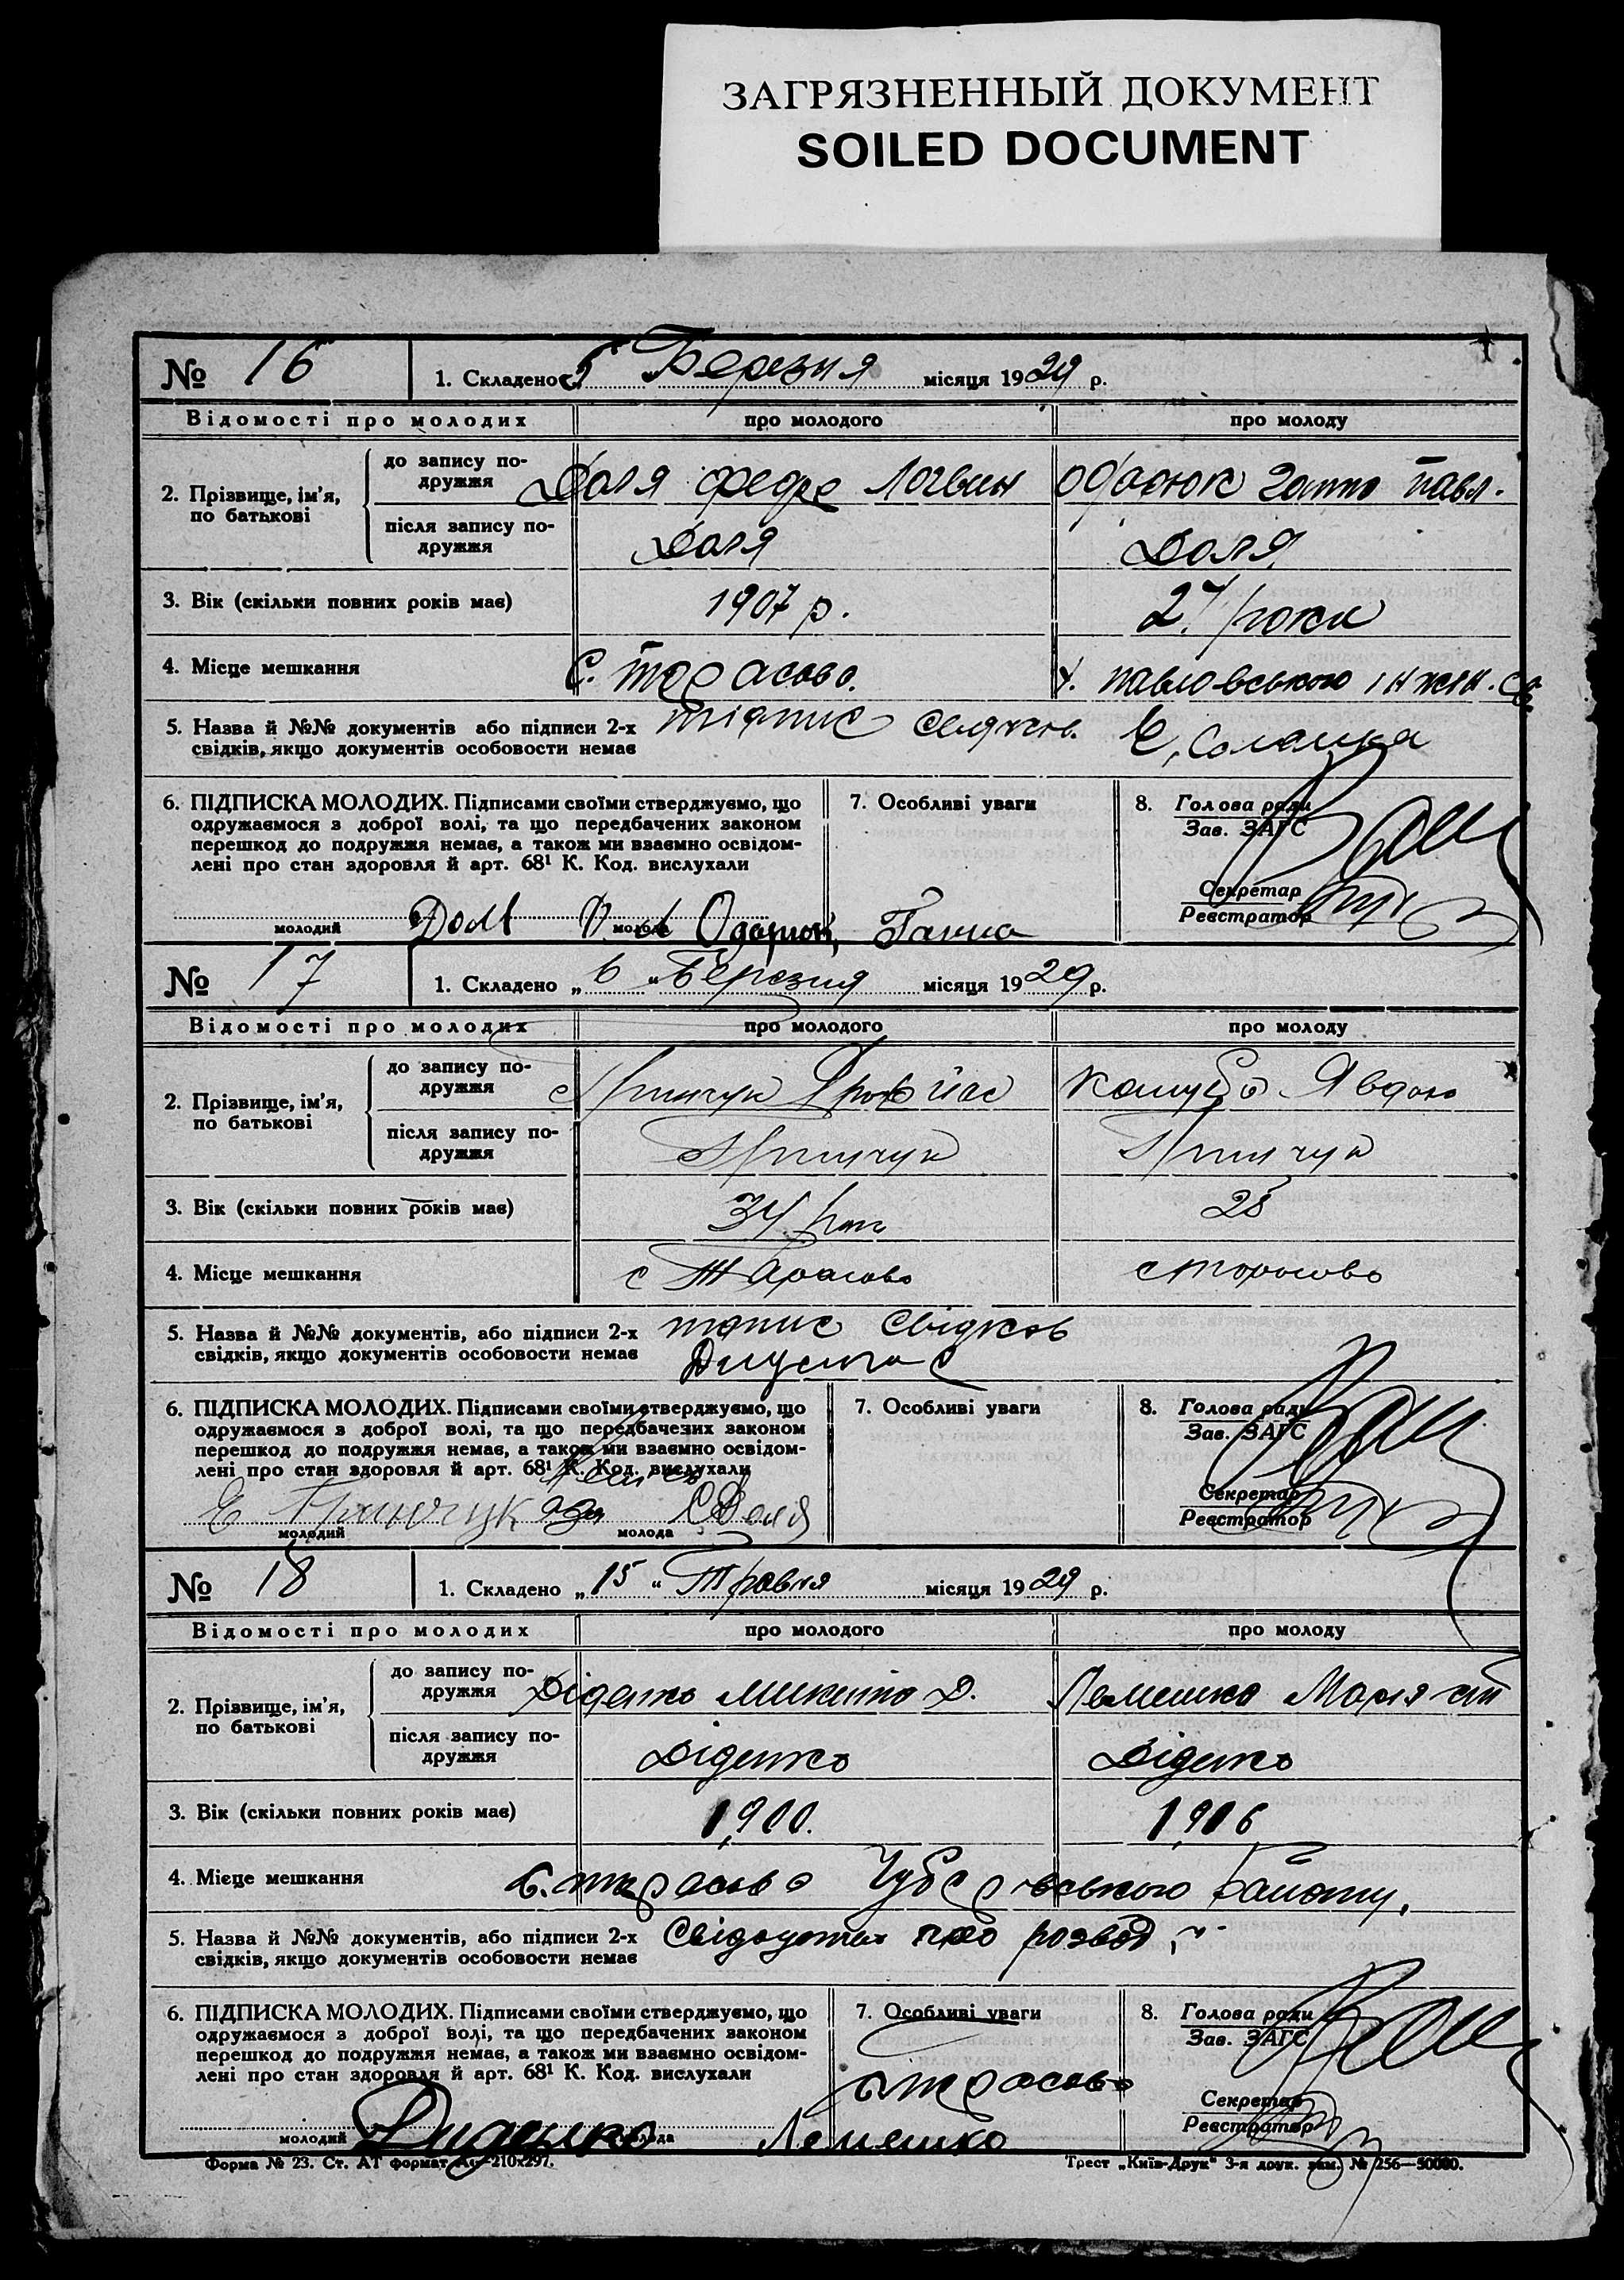 ЗАГРЯЗНЕННЫЙ ДОКУМЕНТ
SOILED DOCUMENT
№ 16 1. Складено 5 Березня місяця 1929 р.
Відомості про молодих про молодого про молоду
2. Прізвище, ім'я, по батькові
до запису подружжя Доля Логвин Ганна Павл.
після запису подружжя Доля Доля
3. Вік (скільки повних років має) 1907 р. 27 роки
4. Місце мешкання С.
5. Назва й №№ документів або підписи 2-х
свідків, якщо документів особовости немає
6. ПІДПИСКА МОЛОДИХ. Підписами своїми стверджуємо, що
одружаємося з доброї волі, та що передбачених законом
перешкод до подружжя немає, а також ми взаємно освідом-
лені про стан здоровля й арт. 68¹ К. Код. вислухали
7. Особливі уваги
8. Голова ради
Зав. ЗАГС
Секретар
Реєстратор
молодий молода Ганна
№ 17 1. Складено „ 6 “ Березня місяця 1929 р.
Відомості про молодих про молодого про молоду
2. Прізвище, ім'я, по батькові
до запису подружжя Гринчук Явдоха
після запису подружжя Гринчук Гринчук
3. Вік (скільки повних років має) 34 28
4. Місце мешкання с Тарасово с Тарасово
5. Назва й №№ документів, або підписи 2-х свідков
свідків, якщо документів особовости немає
6. ПІДПИСКА МОЛОДИХ. Підписами своїми стверджуємо, що
одружаємося з доброї волі, та що передбачених законом
перешкод до подружжя немає, а також ми взаємно освідом-
лені про стан здоровля й арт. 68¹ К. Код. вислухали
7. Особливі уваги
8. Голова ради
Зав. ЗАГС
Секретар
Реєстратор
молодий молода
№ 18 1. Складено „ 15 “ Травня місяця 1929 р.
Відомості про молодих про молодого про молоду
2. Прізвище, ім'я, по батькові
до запису подружжя Діденко Микита Д. Лемешко Марія
після запису подружжя Діденко Діденко
3. Вік (скільки повних років має) 1900. 1906
4. Місце мешкання с. Тарасово
5. Назва й №№ документів, або підписи 2-х про розвод
свідків, якщо документів особовости немає
6. ПІДПИСКА МОЛОДИХ. Підписами своїми стверджуємо, що
одружаємося з доброї волі, та що передбачених законом
перешкод до подружжя немає, а також ми взаємно освідом-
лені про стан здоровля й арт. 68¹ К. Код. вислухали
7. Особливі уваги
8. Голова ради
Зав. ЗАГС
Секретар
Реєстратор
молодий Диденко молода Лемешко
Форма № 23. Ст. АТ формат 210x297. Трест „Київ-Друк“ 3-я друк. зам. № 256—50000.